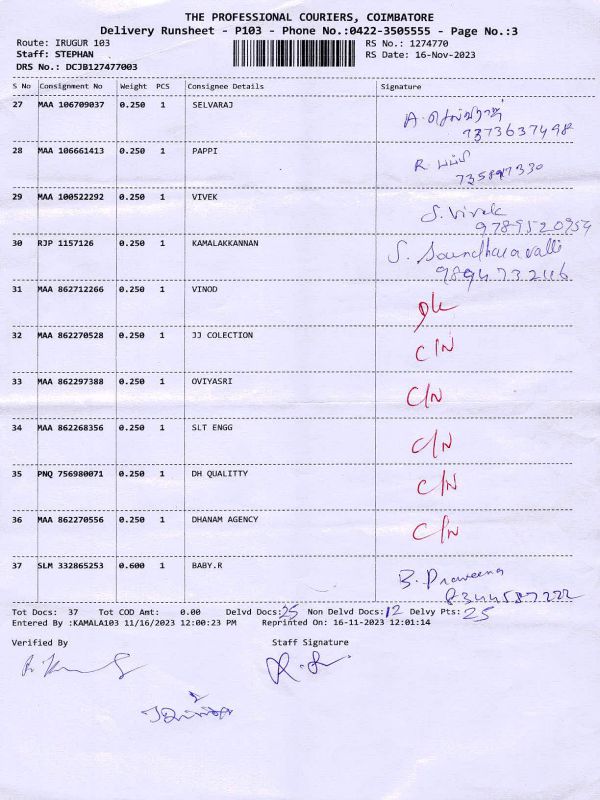 THE PROFESSIONAL COURIERS, COIMBATORE
Delivery Runsheet - P103 - Phone No.:0422-3505555 - Page No.:3
Route: IRUGUR 103 RS No.: 1274770
Staff: STEPHAN RS Date: 16-Nov-2023
DRS No.: DCJB127477003
S No Consignment No Weight PCS Consignee Details Signature
27 MAA 106709037 0.250 1 SELVARAJ A. செல்வராஜ்
7373637498
28 MAA 106661413 0.250 1 PAPPI R. பப்பி
735897330
29 MAA 100522292 0.250 1 VIVEK S. Vivek
9789520959
30 RJP 1157126 0.250 1 KAMALAKKANNAN S. Soundharavalli
989473246
31 MAA 862712266 0.250 1 VINOD DL
32 MAA 862270528 0.250 1 JJ COLECTION C/N
33 MAA 862297388 0.250 1 OVIYASRI C/N
34 MAA 862268356 0.250 1 SLT ENGG C/N
35 PNQ 756980071 0.250 1 DH QUALITTY C/N
36 MAA 862270556 0.250 1 DHANAM AGENCY C/N
37 SLM 332865253 0.600 1 BABY.R B. Praweena
8344587222
Tot Docs: 37 Tot COD Amt: 0.00 Delvd Docs: 25 Non Delvd Docs: 12 Delvy Pts: 25
Entered By :KAMALA103 11/16/2023 12:00:23 PM Reprinted On: 16-11-2023 12:01:14
Verified By Staff Signature